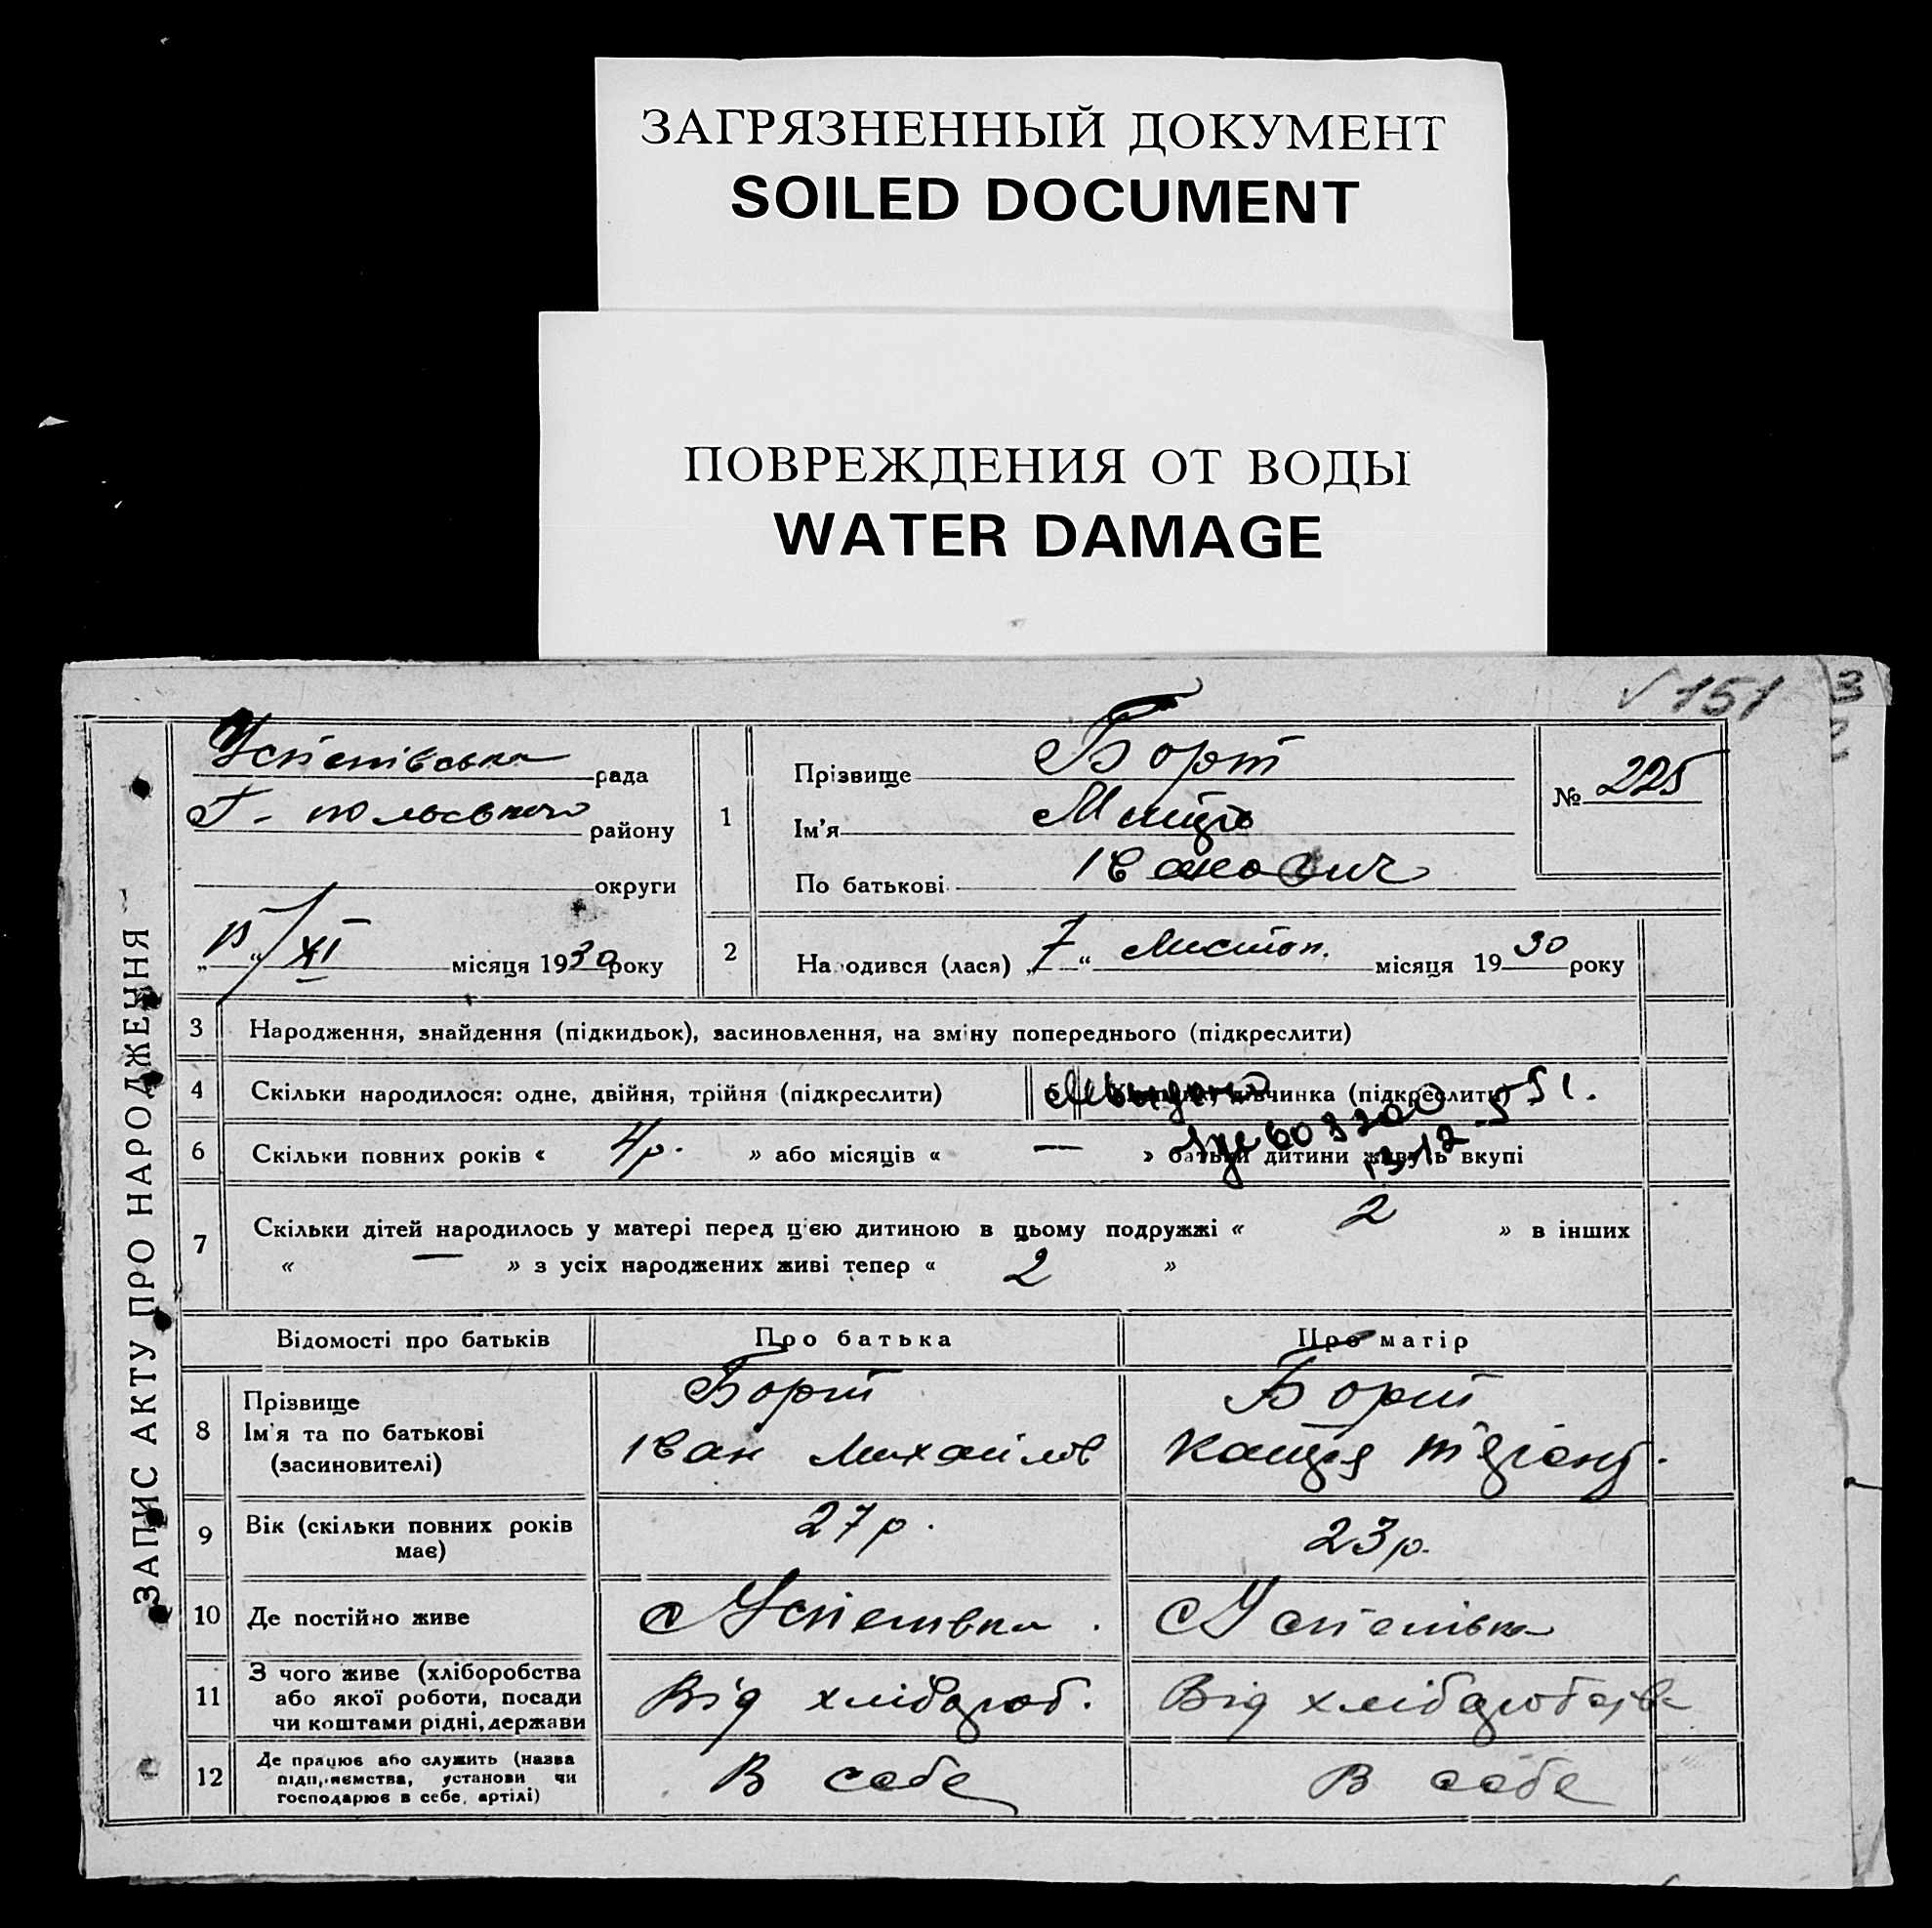 ЗАГРЯЗНЕННЫЙ ДОКУМЕНТ
SOILED DOCUMENT
ПОВРЕЖДЕНИЯ ОТ ВОДЫ
WATER DAMAGE
√ 151
ЗАПИС АКТУ ПРО НАРОДЖЕННЯ
Успенівська рада
району
округи
„15“ XI місяця 1930 року
1
Прізвище Борт
Ім'я
По батькові Іванович
№ 225
2 Народився (лася) „7“ Листоп. місяця 1930 року
3 Народження, знайдення (підкидьок), засиновлення, на зміну попереднього (підкреслити)
4 Скільки народилося: одне, двійня, трійня (підкреслити)
дівчинка (підкреслити)
6 Скільки повних років « 4р. » або місяців « — » батьки дитини живуть вкупі
7 Скільки дітей народилось у матері перед цією дитиною в цьому подружжі « 2 » в інших
« — » з усіх народжених живі тепер « 2 »
Відомості про батьків Про батька Про матір
8 Прізвище
Ім'я та по батькові
(засиновителі)
Борт
Іван Михайлов
Борт
9 Вік (скільки повних років
має)
27 р.
23 р.
10 Де постійно живе
с Успенівка.
с Успенівка
11 З чого живе (хліборобства
або якої роботи, посади
чи коштами рідні, держави
Від хлібороб.
Від хліборобства
12 Де працює або служить (назва
підприємства, установи чи
господарює в себе, артілі)
В себе
В себе